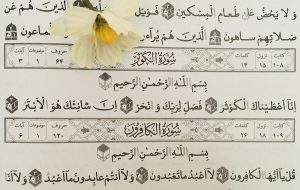 وَ لَا يَحُضُّ عَلَىٰ طَعَامِ الْمِسْكِينِ فَوَيْلٌ
صَلَاتِهِمْ سَاهُونَ الَّذِينَ هُمْ يُرَآءُونَ الْمَاعُونَ
١٠٨ ١٥ ١٤ سُورَةُ الْكَوْثَرِ ٦٤ ١ ٣
بِسْمِ اللَّهِ الرَّحْمَٰنِ الرَّحِيمِ
إِنَّا أَعْطَيْنَاكَ الْكَوْثَرَ فَصَلِّ لِرَبِّكَ وَ انْحَرْ إِنَّ شَانِئَكَ هُوَ الْأَبْتَرُ
١٠٩ ١٨ ٢٦ سُورَةُ الْكَافِرُونَ ١٢٠ ١ ٦
بِسْمِ اللَّهِ الرَّحْمَٰنِ الرَّحِيمِ
قُلْ يَا أَيُّهَا الْكَافِرُونَ لَا أَعْبُدُ مَا تَعْبُدُونَ وَ لَا أَنْتُمْ عَابِدُونَ مَا أَعْبُدُ وَ لَا أَنَا